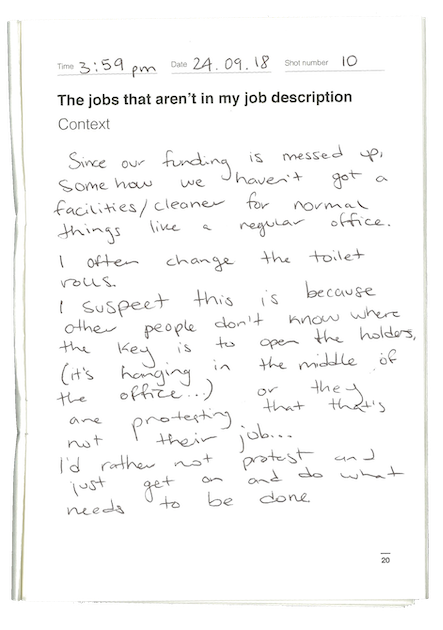 Time 3:59 pm Date 24.09.18 Shot number 10
The jobs that aren't in my job description
Context
Since our funding is messed up,
somehow we haven't got a
facilities/cleaner for normal
things like a regular office.
I often change the toilet
rolls.
I suspect this is because
other people don't know where
the key is to open the holders,
(it's hanging in the middle of
the office...) or they
are protesting that that's
not their job...
I'd rather not protest and
just get on and do what
needs to be done
20